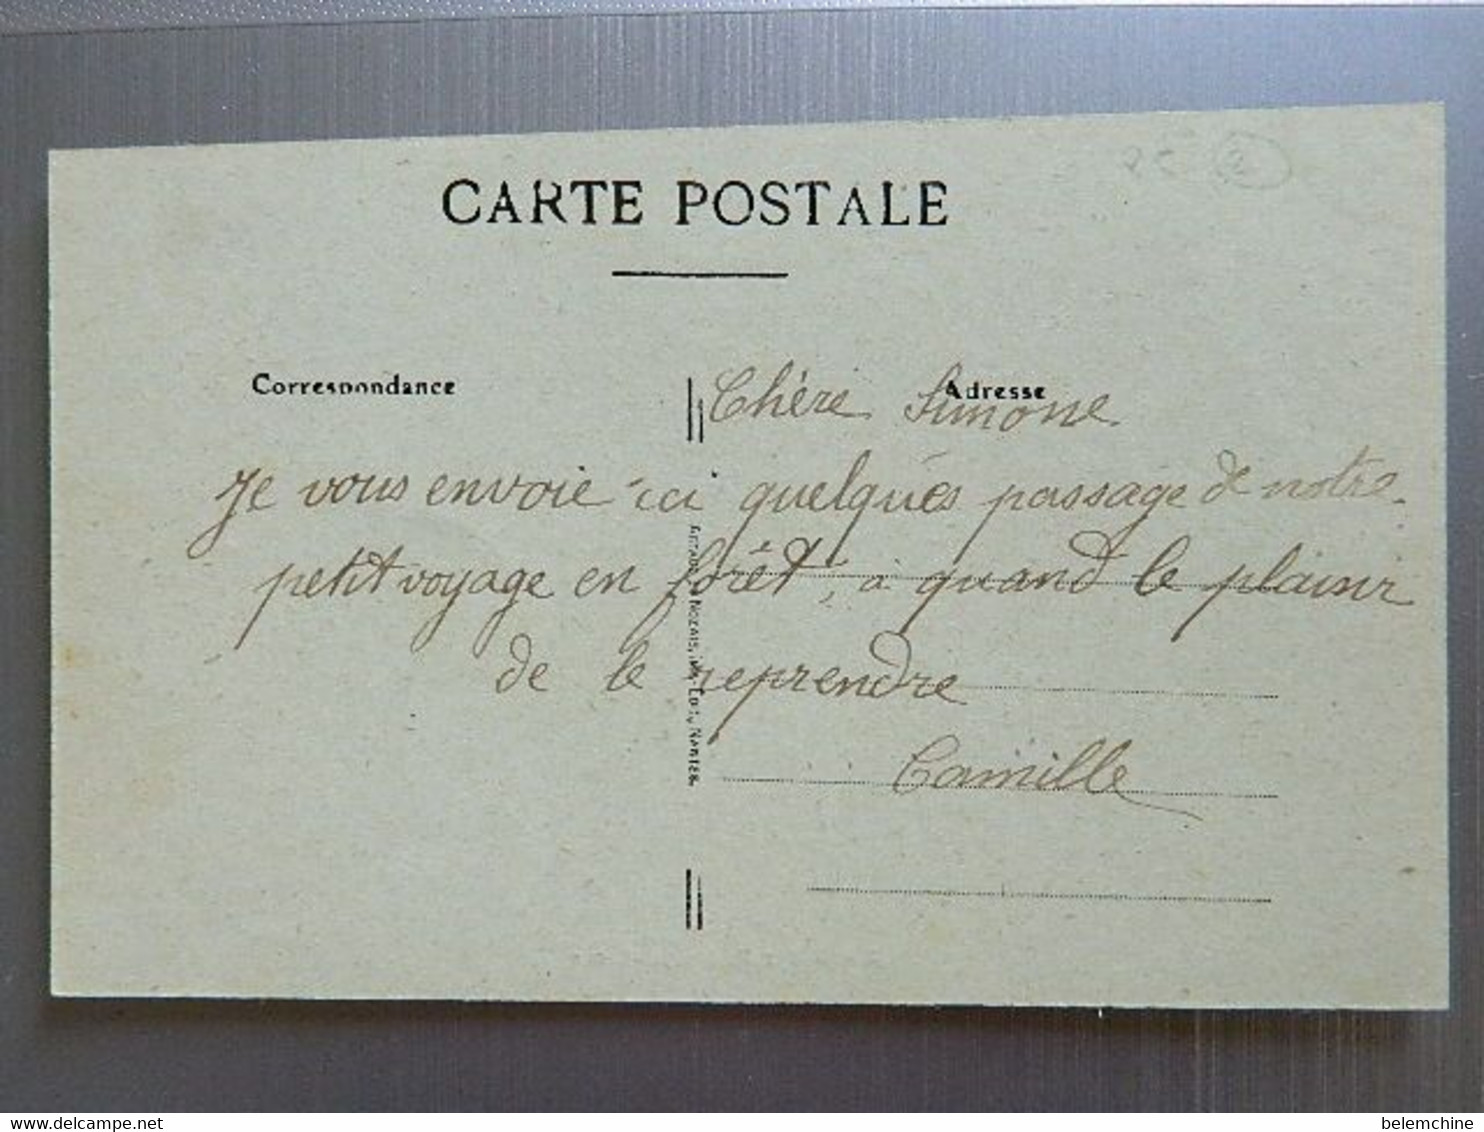 CARTE POSTALE
Correspondance
Adresse
Chère Simone
Je vous envoie ici quelques passage de notre
petit voyage en forêt, à quand le plaisir
de le reprendre
Camille
NOZAIS, NANTES.
delcampe.net
belemchine